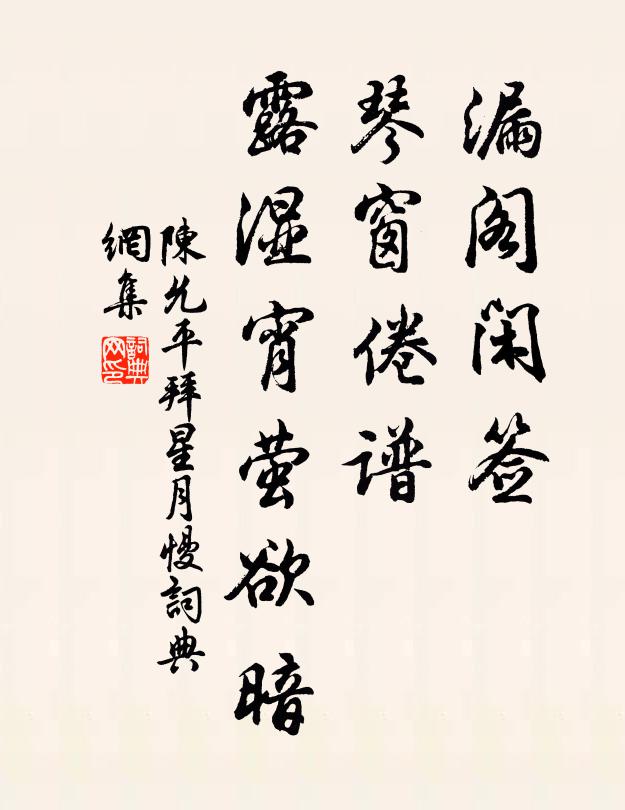 漏阁闲签
琴窗倦谱
露湿宵萤欲暗
陳允平拜星月慢詞典
網集
詞典
网印